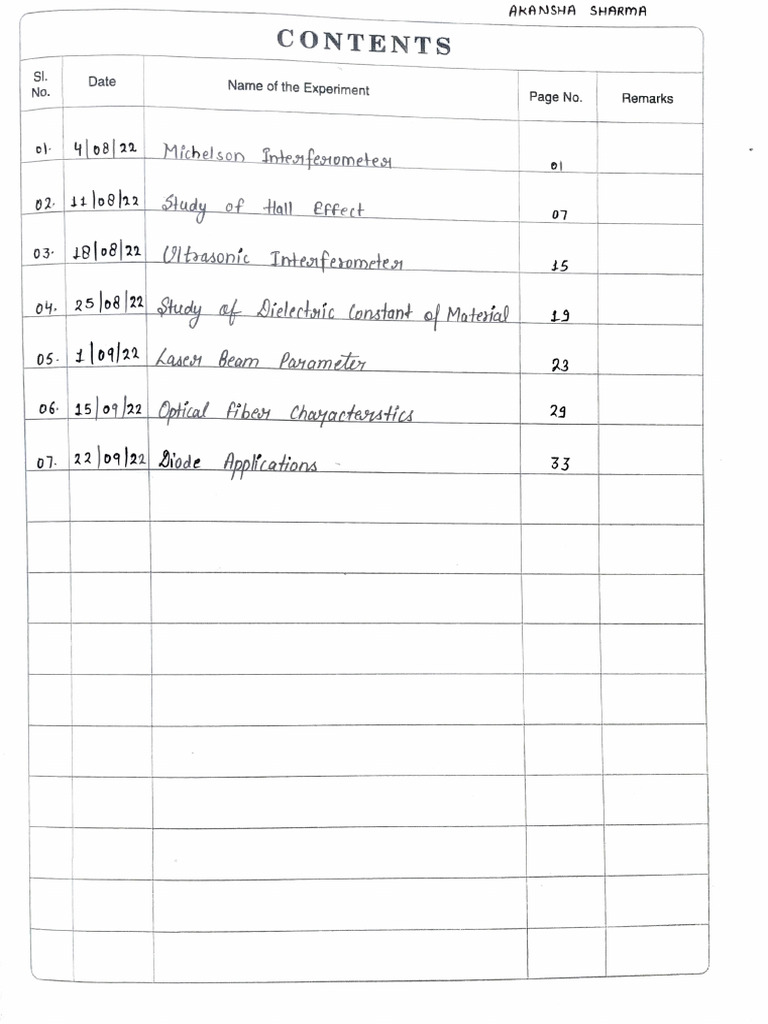 AKANSHA SHARMA
CONTENTS
Sl. No. Date Name of the Experiment Page No. Remarks
01. 4/08/22 Michelson Interferometer 01
02. 11/08/22 Study of Hall Effect 07
03. 18/08/22 Ultrasonic Interferometer 15
04. 25/08/22 Study of Dielectric Constant of Material 19
05. 1/09/22 Laser Beam Parameter 23
06. 15/09/22 Optical Fiber Characterstics 29
07. 22/09/22 Diode Applications 33